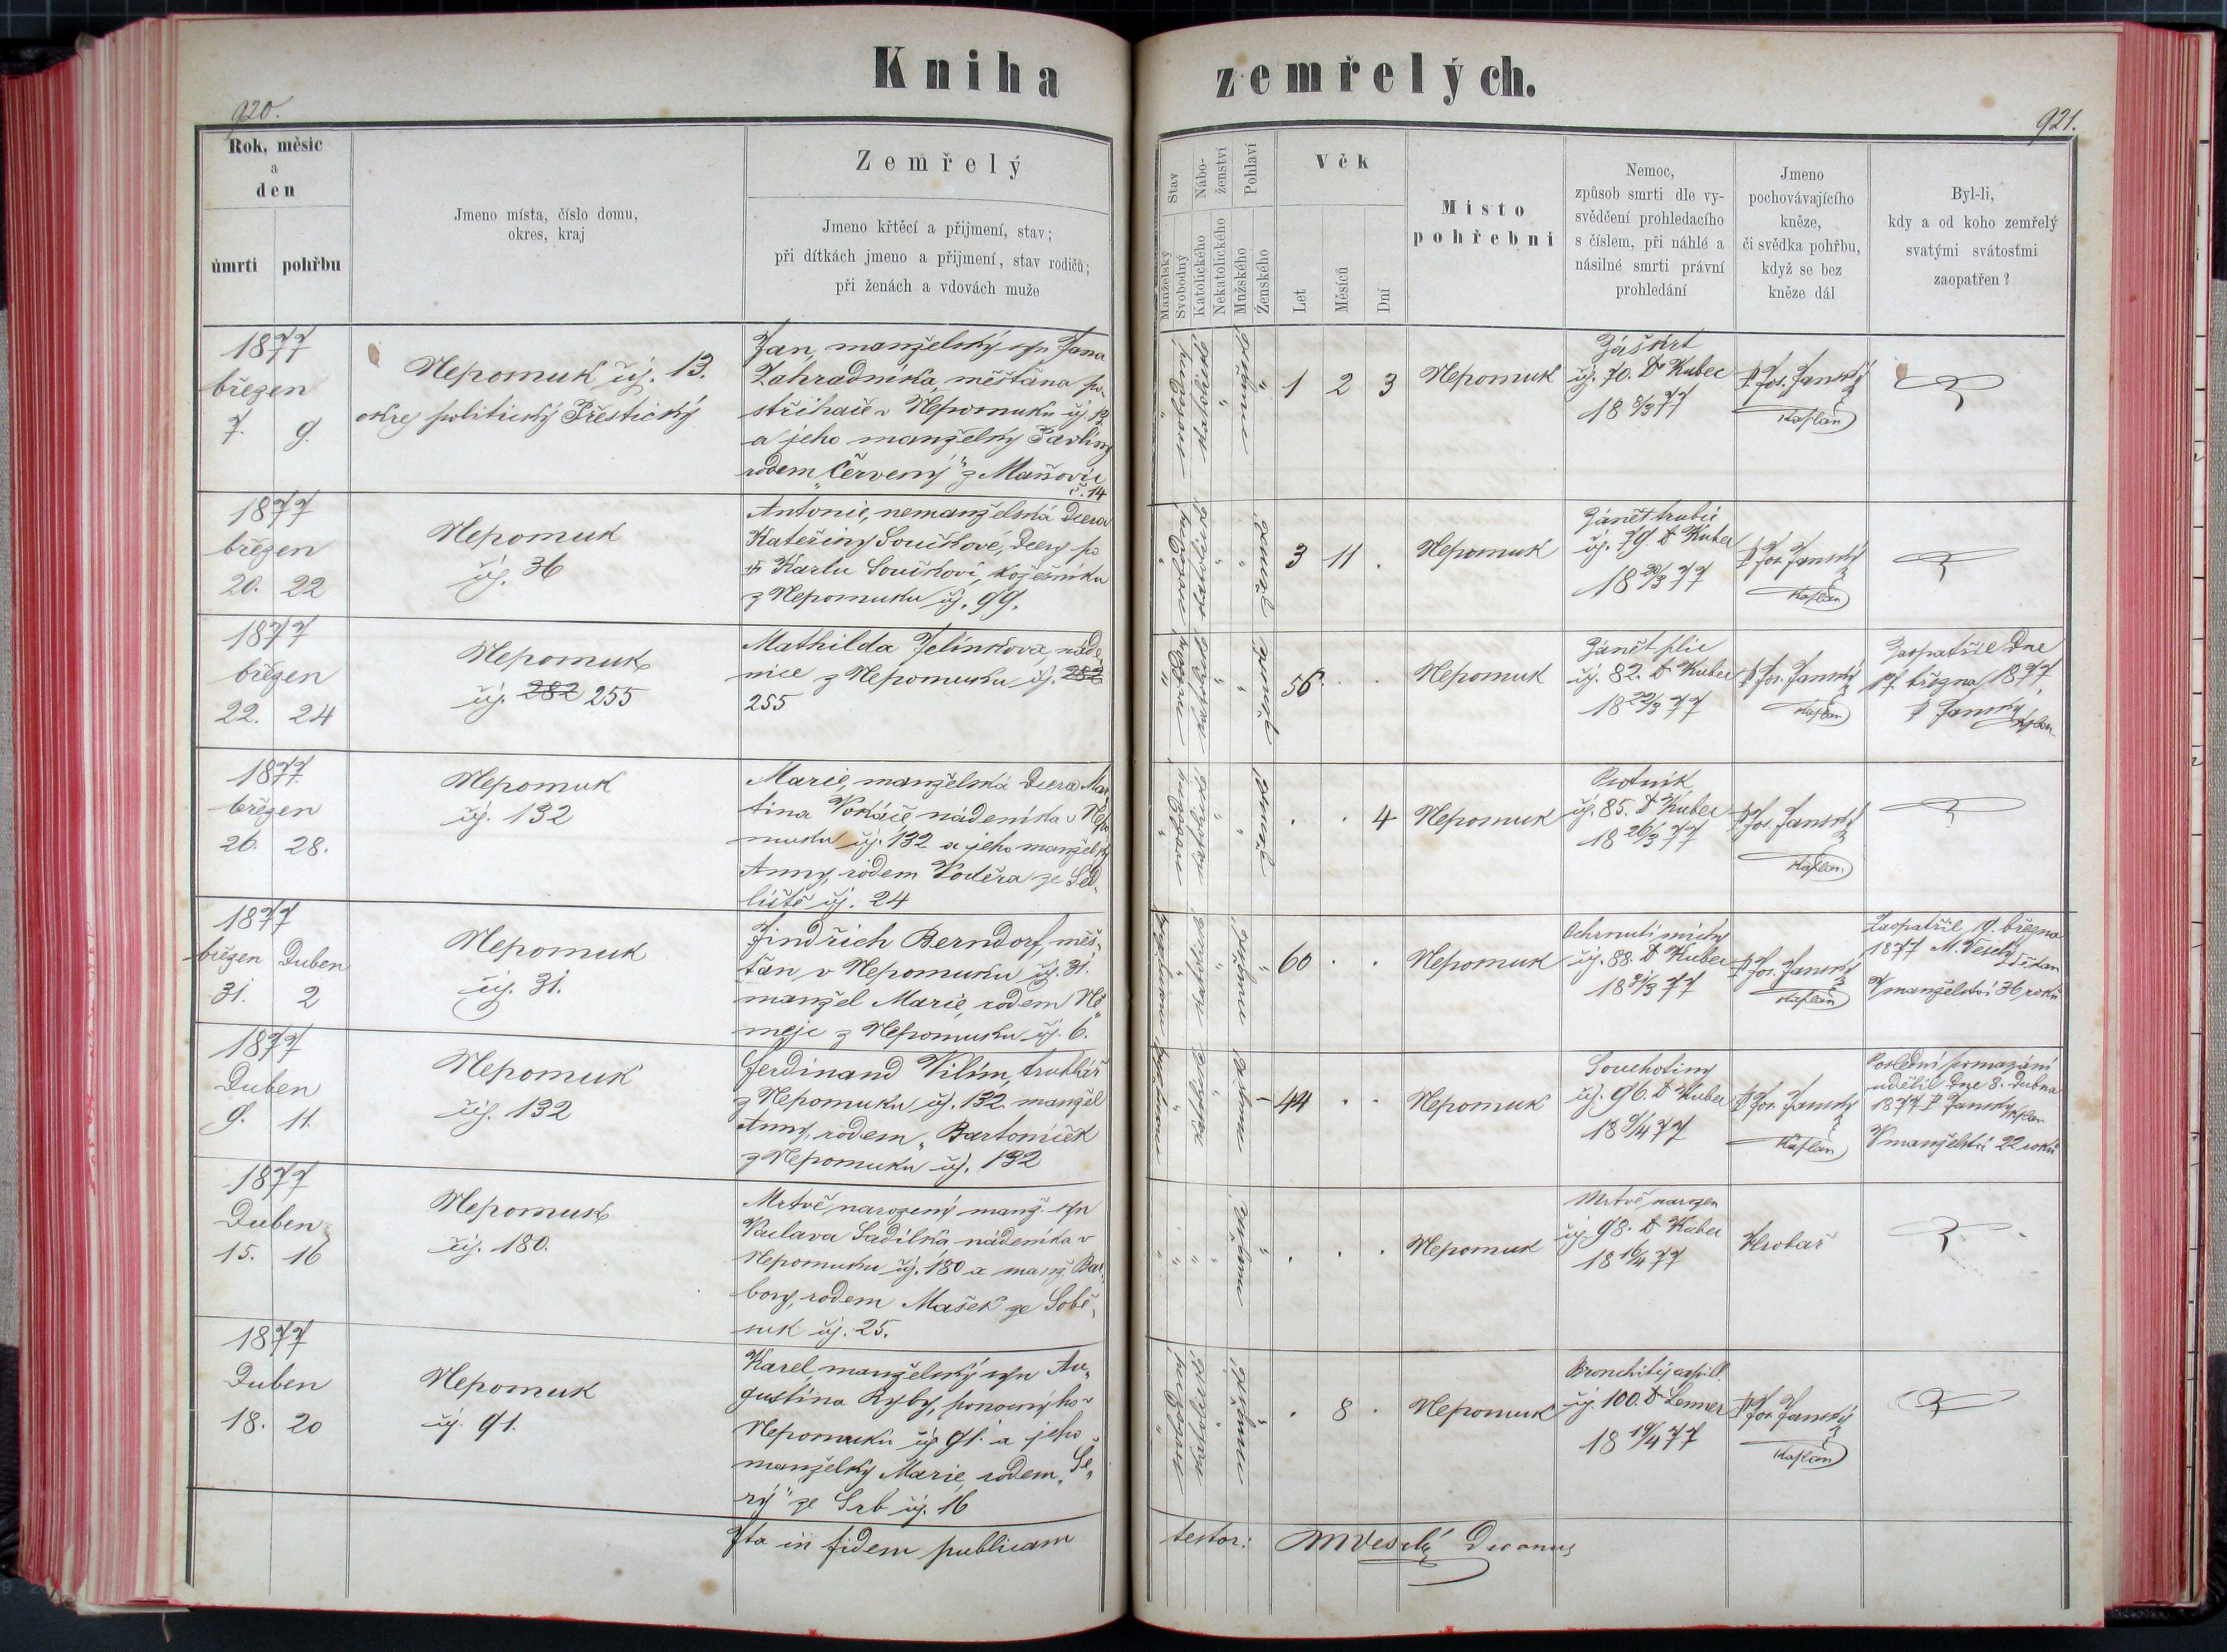 Kniha zemřelých.
920.
921.
Rok, měsíc
a
den
úmrtí pohřbu
Jmeno místa, číslo domu,
okres, kraj
Zemřelý
Jmeno křtěcí a přijmení, stav;
při dítkách jmeno a přijmení, stav rodičů;
při ženách a vdovách muže
Stav
Manželský
Svobodný
Nábo-
ženství
Katolického
Nekatolického
Pohlaví
Mužského
Ženského
Věk
Let
Měsíců
Dní
Místo
pohřební
Nemoc,
způsob smrti dle vy-
svědčení prohledacího
s číslem, při náhlé a
násilné smrti právní
prohledání
Jmeno
pochovávajícího
kněze,
či svědka pohřbu,
když se bez
kněze dál
Byl-li,
kdy a od koho zemřelý
svatými svátostmi
zaopatřen?
1877
březen
7. 9.
Nepomuk čj. 13.
okres politický Přeštický
Jan, manželský syn Jana
Zahradníka, měštana po-
střihače v Nepomuku čj. 13
a jeho manželky Pavliny
rodem „Červený" z Maňovic
č. 14
svobodného
katolického
mužské
1 2 3
Nepomuk
Záškrt
čj. 70. Dr Kubec
18 8/3 77
P. Jos. Janský
Kaplan
1877
březen
20. 22
Nepomuk
čj. 36
Antonie, nemanželská dcera
Kateřiny Součkové, dcery po
† Karlu Součkovi, kožešníku
z Nepomuku čj. 99.
ženské
3 11 .
Nepomuk
Zánět trubic
čj. 79. Dr Kubec
18 20/3 77
P. Jos. Janský
Kaplan
1877
březen
22. 24
Nepomuk
čj. 282 255
Mathilda Jelínková, náde-
nice z Nepomuku čj. 282
255
ženské
56 . .
Nepomuk
Zánět plic
čj. 82. Dr Kubec
18 22/3 77
P. Jos. Janský
Kaplan
Zaopatřil dne
17. března 1877
P. Janský Kaplan
1877
březen
26. 28.
Nepomuk
čj. 132
Marie, manželská dcera Mar-
tina Vokáče nádeníka v Nepo-
muku čj. 132 a jeho manželky
Anny, rodem Voděra ze Sed-
liště čj. 24
ženské
. . 4
Nepomuk
Psotník
čj. 85. Dr Kubec
18 26/3 77
P. Jos. Janský
Kaplan
1877
březen Duben
31. 2
Nepomuk
čj. 31.
Jindřich Berndorf, měš-
ťan v Nepomuku čj. 31.
manžel Marie, rodem Ně-
mejc z Nepomuku čj. 6.
60 . .
Nepomuk
Ochrnutí míchy
čj. 88. Dr Kubec
18 31/3 77
P. Jos. Janský
Kaplan
Zaopatřil 19. března
1877 M. Veselý Děkan
V manželství 36 roků
1877
Duben
9. 11.
Nepomuk
čj. 132
Ferdinand Vilím, truhlář
z Nepomuku čj. 132 manžel
Anny, rodem „Bartoníček
z Nepomuku čj. 132
44 . .
Nepomuk
Souchotiny
čj. 96. Dr Kubec
18 9/4 77
P. Jos. Janský
Kaplan
Poslední pomazání
udělil dne 8. dubna
1877 P. Janský Kaplan
V manželství 22 roků
1877
Duben
15. 16
Nepomuk
čj. 180.
Mrtvě narozený manž. syn
Václava Sadílka nádeníka v
Nepomuku čj. 180 a manž. Bar-
bory, rodem Mašek ze Sobě-
suk čj. 25.
. . .
Nepomuk
Mrtvě narozen
čj. 98. Dr Kubec
18 16/4 77
Hrobař
1877
Duben
18. 20
Nepomuk
čj. 91.
Karel, manželský syn Au-
gustina Ryby, ponocného v
Nepomuku čj. 91. a jeho
manželky Marie, rodem „Še-
rý" ze Srb čj. 16
. 8 .
Nepomuk
Bronchitis capill.
čj. 100. Dr Lenner
18 19/4 77
P. Jos. Janský
Kaplan
Ita in fidem publicam
testor: MVeselý Decanus